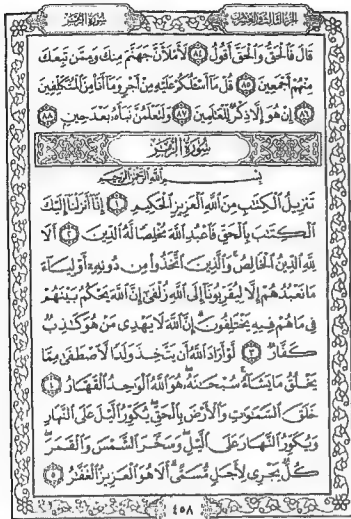 الجزء الثالث والعشرون سورة الزمر
قَالَ فَالْحَقُّ وَالْحَقَّ أَقُولُ ٨٤ لَأَمْلَأَنَّ جَهَنَّمَ مِنكَ وَمِمَّن تَبِعَكَ
مِنْهُمْ أَجْمَعِينَ ٨٥ قُلْ مَا أَسْـَٔلُكُمْ عَلَيْهِ مِنْ أَجْرٍ وَمَا أَنَا مِنَ الْمُتَكَلِّفِينَ
٨٦ إِنْ هُوَ إِلَّا ذِكْرٌ لِّلْعَالَمِينَ ٨٧ وَلَتَعْلَمُنَّ نَبَأَهُ بَعْدَ حِينٍ ٨٨
سورة الزمر
بِسْمِ اللَّهِ الرَّحْمَٰنِ الرَّحِيمِ
تَنزِيلُ الْكِتَٰبِ مِنَ اللَّهِ الْعَزِيزِ الْحَكِيمِ ١ إِنَّا أَنزَلْنَا إِلَيْكَ
الْكِتَٰبَ بِالْحَقِّ فَاعْبُدِ اللَّهَ مُخْلِصًا لَّهُ الدِّينَ ٢ أَلَا
لِلَّهِ الدِّينُ الْخَالِصُ وَالَّذِينَ اتَّخَذُوا مِن دُونِهِ أَوْلِيَاءَ
مَا نَعْبُدُهُمْ إِلَّا لِيُقَرِّبُونَا إِلَى اللَّهِ زُلْفَىٰ إِنَّ اللَّهَ يَحْكُمُ بَيْنَهُمْ
فِي مَا هُمْ فِيهِ يَخْتَلِفُونَ إِنَّ اللَّهَ لَا يَهْدِي مَنْ هُوَ كَٰذِبٌ
كَفَّارٌ ٣ لَّوْ أَرَادَ اللَّهُ أَن يَتَّخِذَ وَلَدًا لَّاصْطَفَىٰ مِمَّا
يَخْلُقُ مَا يَشَاءُ سُبْحَٰنَهُ هُوَ اللَّهُ الْوَٰحِدُ الْقَهَّارُ ٤
خَلَقَ السَّمَٰوَٰتِ وَالْأَرْضَ بِالْحَقِّ يُكَوِّرُ الَّيْلَ عَلَى النَّهَارِ
وَيُكَوِّرُ النَّهَارَ عَلَى الَّيْلِ وَسَخَّرَ الشَّمْسَ وَالْقَمَرَ
كُلٌّ يَجْرِي لِأَجَلٍ مُّسَمًّى أَلَا هُوَ الْعَزِيزُ الْغَفَّٰرُ ٥
٤٥٨